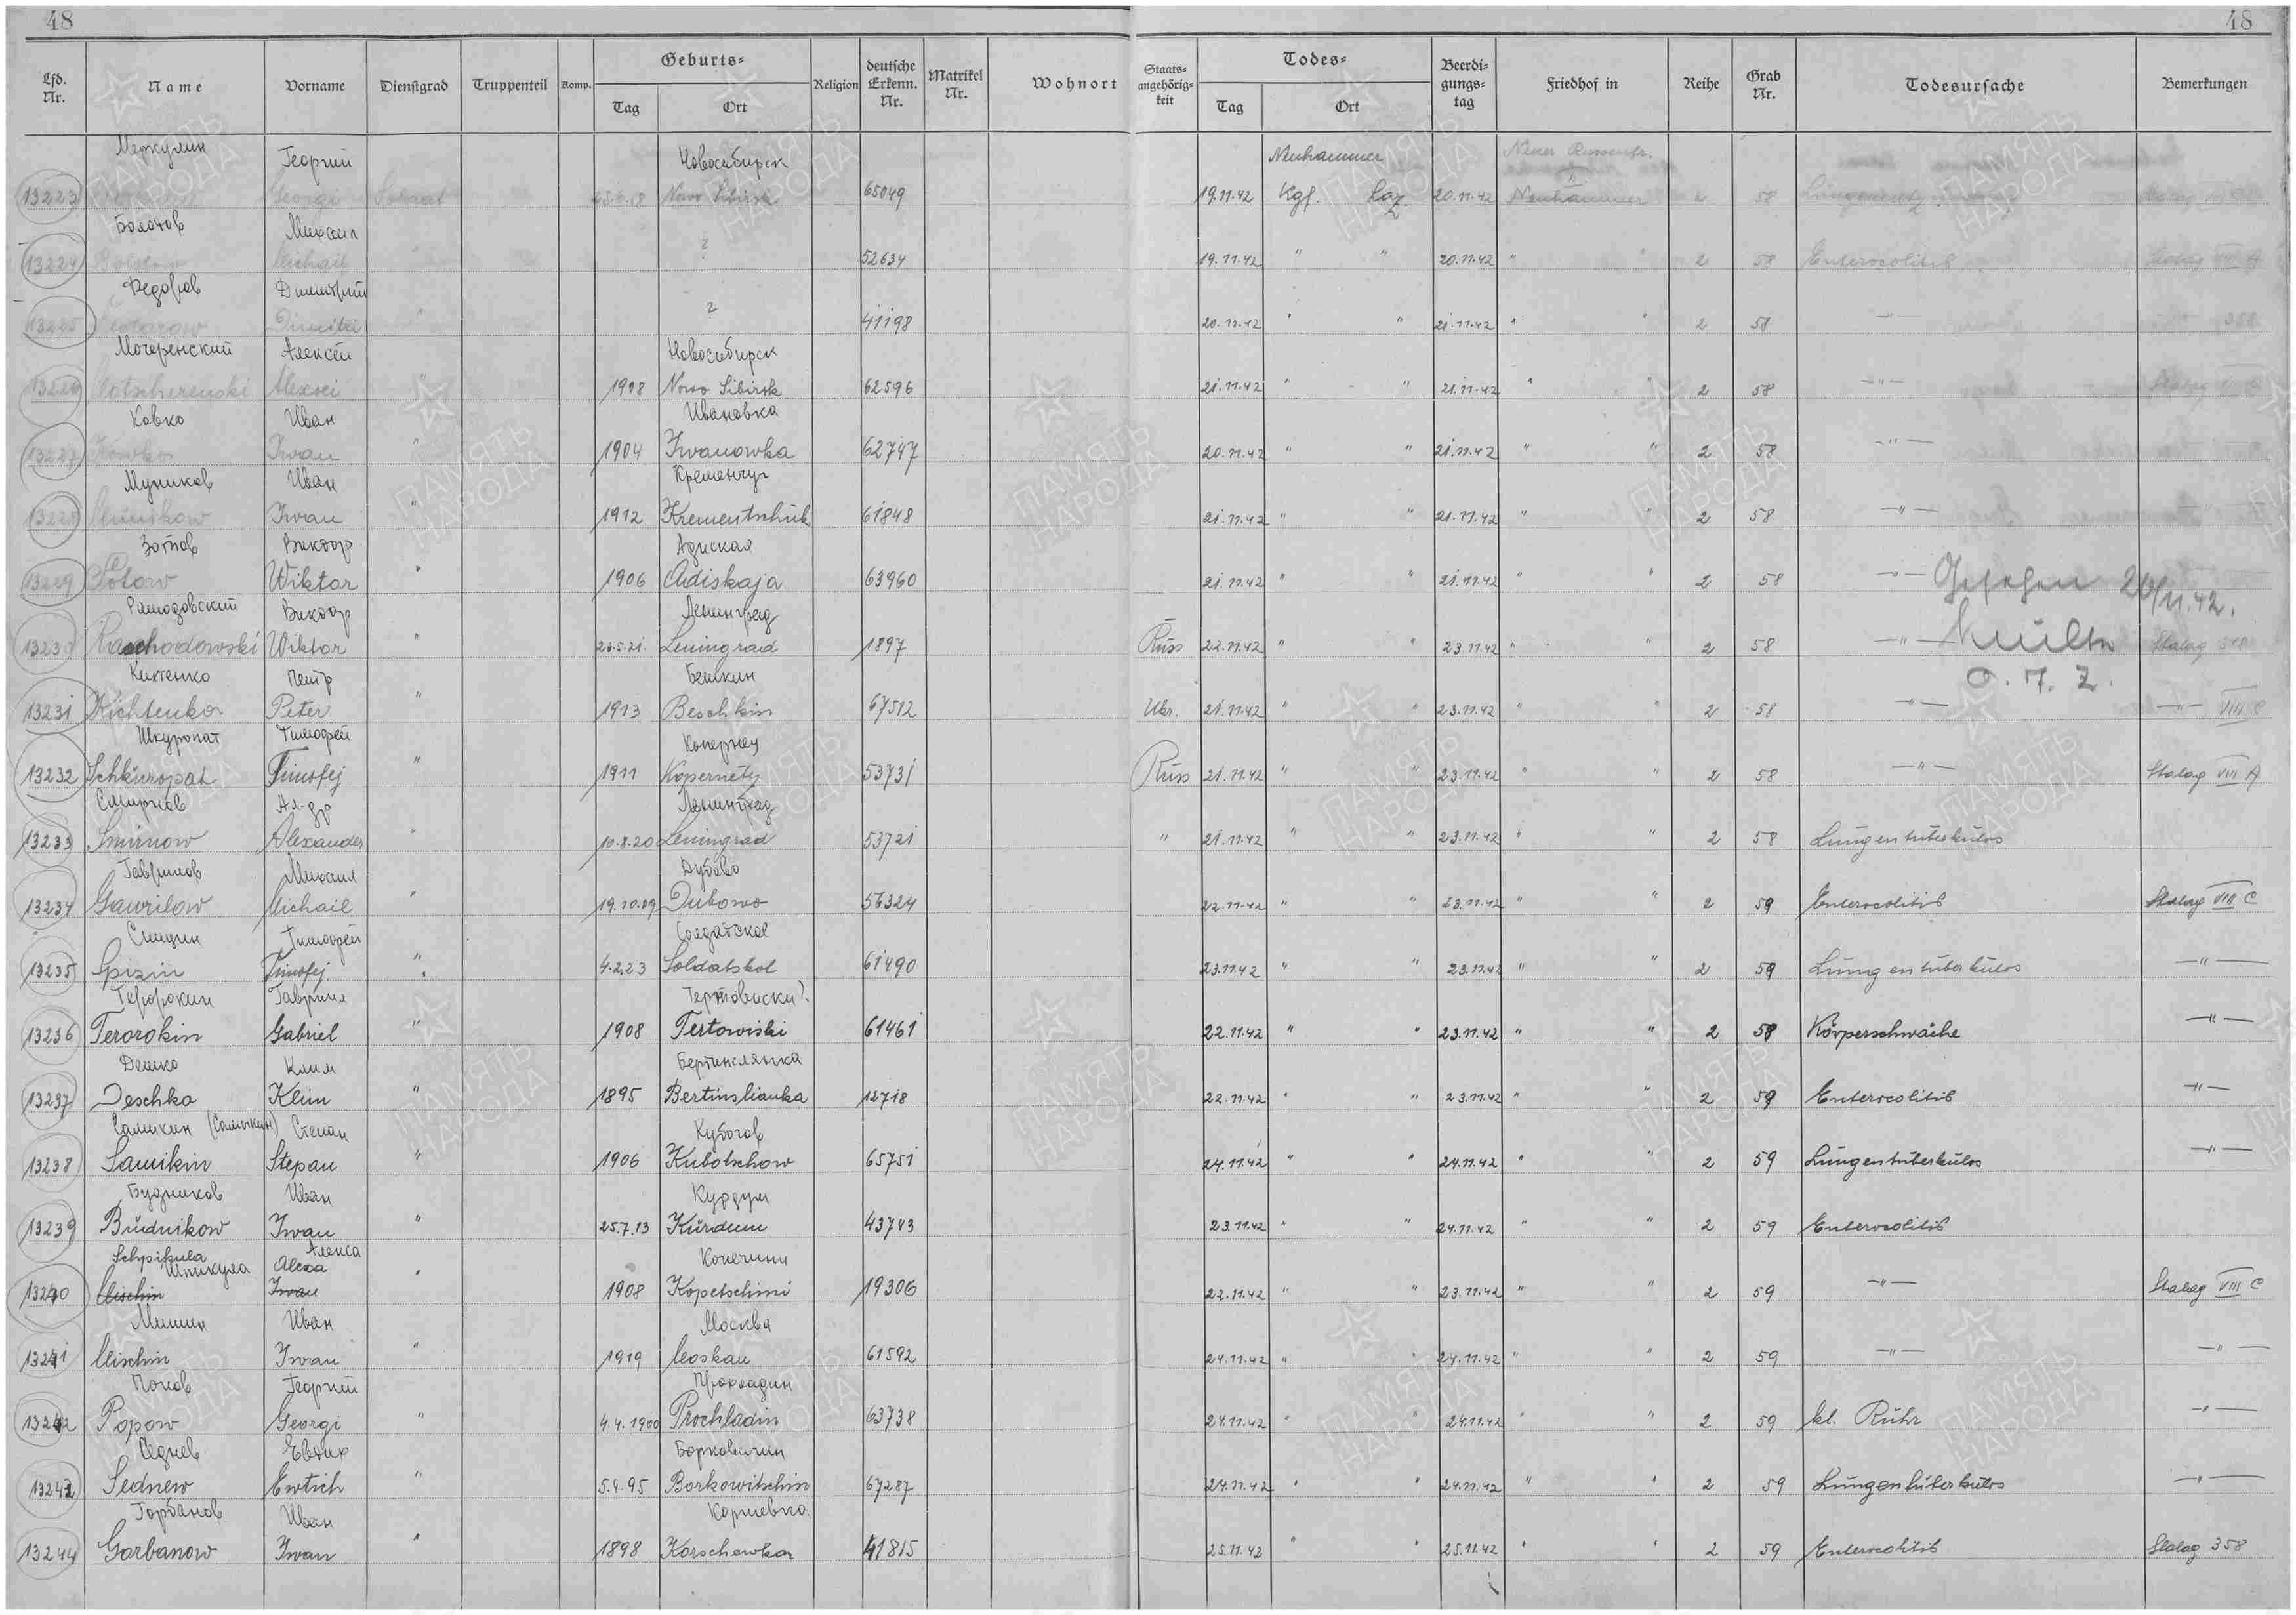 48 48
Lfd. Nr. Name Vorname Dienstgrad Truppenteil Komp. Geburts= Tag Ort Religion deutsche Erkenn. Nr. Matrikel Nr. Wohnort Staats=angehörig=keit Todes= Tag Ort Beerdi=gungs=tag Friedhof in Reihe Grab Nr. Todesursache Bemerkungen
Меркулин Георгий Новосибирск Neuhammer Neuer
13223 Georgi Soldat Novo Sibirsk 65049 19.11.42 Kgf. Laz. 20.11.42 Neuhammer 2 58
Болотов Михаил
13224 Bolotow Michail " ? 52634 19.11.42 " " 20.11.42 " " 2 58 Enterocolitis Stalag VIII A
Федоров Дмитрий
13225 Fedorow Dimitri " ? 41198 20.11.42 " " 21.11.42 " " 2 58 -"- 358
Мочеренский Алексей Новосибирск
13226 Motscherenski Alexei " 1908 Novo Sibirsk 62596 21.11.42 " " 21.11.42 " " 2 58 -"- Stalag
Ковко Иван Ивановка
13227 Kowko Iwan " 1904 Iwanowka 62747 20.11.42 " " 21.11.42 " " 2 58 -"-
Муников Иван Кременчуг
13228 Munikow Iwan " 1912 Krementschuk 61848 21.11.42 " " 21.11.42 " " 2 58 -"-
Зотов Виктор Адиская
13229 Sotow Wiktor " 1906 Adiskaja 63960 21.11.42 " " 21.11.42 " " 2 58 -"- Gesehen 26/11.42.
Рашодовский Виктор Ленинград
13230 Raschodowski Wiktor " 26.5.21. Leningrad 1897 Russ 22.11.42 " " 23.11.42 " " 2 58 -"- Stalag
Кихтенко Петр Бешкин O. A. Z.
13231 Kichtenko Peter " 1913 Beschkin 67512 Ukr. 21.11.42 " " 23.11.42 " " 2 58 -"- -"- VIII C
Шкуропат Тимофей
13232 Schkuropat Timofej " 1911 Kopernety 53731 Russ 21.11.42 " " 23.11.42 " " 2 58 -"- Stalag VIII A
Смирнов Ал-др Ленинград
13233 Smirnow Alexander " 10.8.20 Leningrad 53721 " 21.11.42 " " 23.11.42 " " 2 58 Lungentuberkulos
Гаврилов Михаил Дубово
13234 Gawrilow Michail " 19.10.09 Dubowo 56324 22.11.42 " " 23.11.42 " " 2 59 Enterocolitis Stalag VIII C
Спицин Тимофей Солдатскол
13235 Spizin Timofej " 4.2.23 Soldatskol 61490 23.11.42 " " 23.11.42 " " 2 59 Lungentuberkulos -"-
Теророкин Гавриил Тертовиски?
13236 Terorokin Gabriel " 1908 Tertowiski 61461 22.11.42 " " 23.11.42 " " 2 58 Körperschwäche -"-
Дешко Клим Бертинслянка
13237 Deschko Klim " 1895 Bertinslianka 12718 22.11.42 " " 23.11.42 " " 2 59 Enterocolitis -"-
Самикин (Самыкин) Степан Кубочов
13238 Samikin Stepan " 1906 Kubotschow 65751 24.11.42 " " 24.11.42 " " 2 59 Lungentuberkulos -"-
Будников Иван Курдум
13239 Budnikow Iwan " 25.7.13 Kurdum 43743 23.11.42 " " 24.11.42 " " 2 59 Enterocolitis
Schpikula Шпикула Алекса Alexa Копечини
13240 Mischin Iwan " 1908 Kopetschini 19306 22.11.42 " " 23.11.42 " " 2 59 -"- Stalag VIII C
Мишин Иван Москва
13241 Mischin Iwan " 1919 Moskau 61592 24.11.42 " " 24.11.42 " " 2 59 -"- -"-
Попов Георгий Прохладин
13242 Popow Georgi " 4.4.1900 Prochladin 63738 24.11.42 " " 24.11.42 " " 2 59 kl. Ruhr -"-
Седнев Евтих Борковичин
13243 Sednew Ewtich " 5.4.95 Borkowitschin 67287 24.11.42 " " 24.11.42 " " 2 59 Lungentuberkulos -"-
Горбанов Иван Коршевка
13244 Gorbanow Iwan " 1898 Korschewka 41815 25.11.42 " " 25.11.42 " " 2 59 Enterocolitis Stalag 358
ПАМЯТЬ НАРОДА